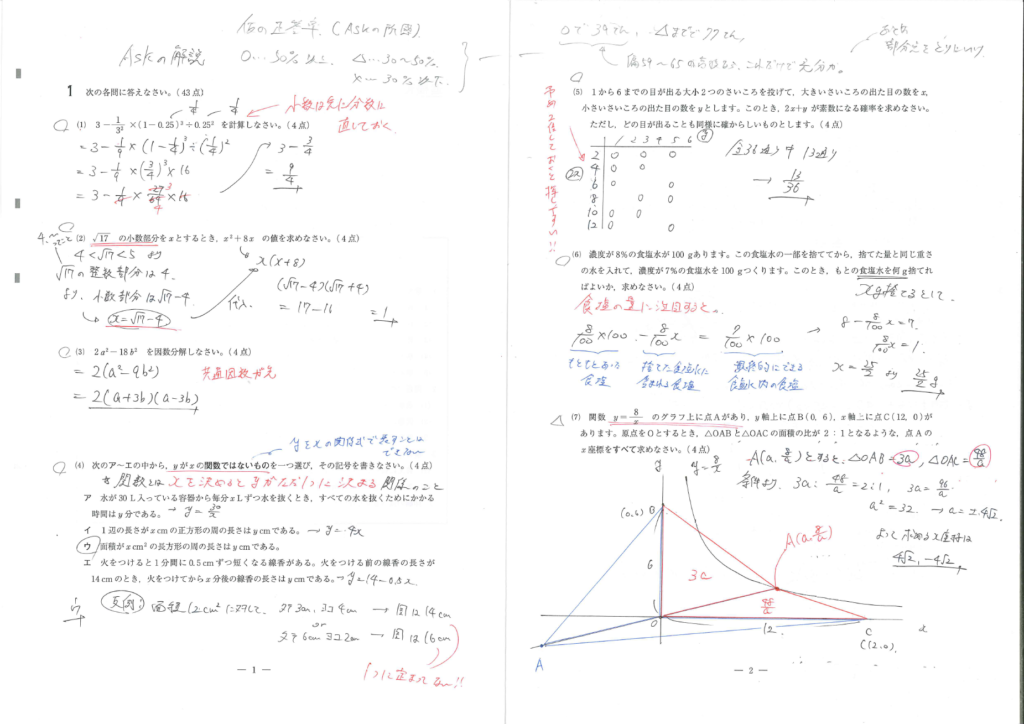 Askの解説
(Askの所感)
○…50%以上, △…30〜50%
×…30%以下
1 次の各問に答えなさい。(43点)
小数は先に分数に直しておく
(1) 3−1/3²×(1−0.25)³÷0.25² を計算しなさい。(4点)
=3−1/9×(1−1/4)³÷(1/4)²
=3−1/9×(3/4)³×16
=3−1/9×27/64×16
3−3/4
=9/4
(2) √17 の小数部分をxとするとき,x²+8x の値を求めなさい。(4点)
4<√17<5 より
√17の整数部分は4.
より, 小数部分は√17−4.
x=√17−4
代入
x(x+8)
(√17−4)(√17+4)
=17−16
=1
(3) 2a²−18b² を因数分解しなさい。(4点)
=2(a²−9b²)
共通因数が先
=2(a+3b)(a−3b)
yをxの関係式で表すことはできない
(4) 次のア〜エの中から,yがxの関数ではないものを一つ選び,その記号を書きなさい。(4点)
関数とは xを決めるとyがただ1つに決まる関係のこと
ア 水が30L入っている容器から毎分xLずつ水を抜くとき,すべての水を抜くためにかかる
時間はy分である。→y=30/x
イ 1辺の長さがxcmの正方形の周の長さはycmである。→y=4x
ウ 面積がxcm²の長方形の周の長さはycmである。
エ 火をつけると1分間に0.5cmずつ短くなる線香がある。火をつける前の線香の長さが
14cmのとき,火をつけてからx分後の線香の長さはycmである。→y=14−0.5x
ウ
反例: 面積12cm²に対して, タテ3cm,ヨコ4cm →周は14cm
or
タテ6cm ヨコ2cm →周は16cm
1つに定まってない!!
— 1 —
○で39てん, △までで77てん,
(5) 1から6までの目が出る大小2つのさいころを投げて,大きいさいころの出た目の数をx,
小さいさいころの出た目の数をyとします。このとき,2x+y が素数になる確率を求めなさい。
ただし,どの目が出ることも同様に確からしいものとします。(4点)
1 2 3 4 5 6 y
2 0 0 0
4 0 0
2x
6 0 0
8 0 0
10 0 0
12 0 0
全36通り中 13通り
→13/36
(6) 濃度が8%の食塩水が100gあります。この食塩水の一部を捨ててから,捨てた量と同じ重さ
の水を入れて,濃度が7%の食塩水を100gつくります。このとき,もとの食塩水を何g捨てれ
ばよいか,求めなさい。(4点)
xg捨てるとして.
食塩の量に注目すると。
8/100×100 − 8/100x = 7/100×100
→ 8−8/100x=7.
8/100x=1.
x=25/2 より 25/2 g
もともとある食塩
捨てた食塩水に含まれる食塩
最終的にできる食塩水内の食塩
(7) 関数 y=8/x のグラフ上に点Aがあり,y軸上に点B(0,6),x軸上に点C(12,0)が
あります。原点をOとするとき,△OABと△OACの面積の比が2:1となるような,点Aの
x座標をすべて求めなさい。(4点)
A(a,8/a)とすると,△OAB=3a,△OAC=48/a
条件より, 3a:48/a=2:1, 3a=96/a
a²=32 →a=±4√2.
よって 求めるx座標は
4√2,−4√2
y
y=8/x
(0,6)B
A(a,8/a)
6
3a
48/a
O
12
C
C(12,0)
x
A
— 2 —